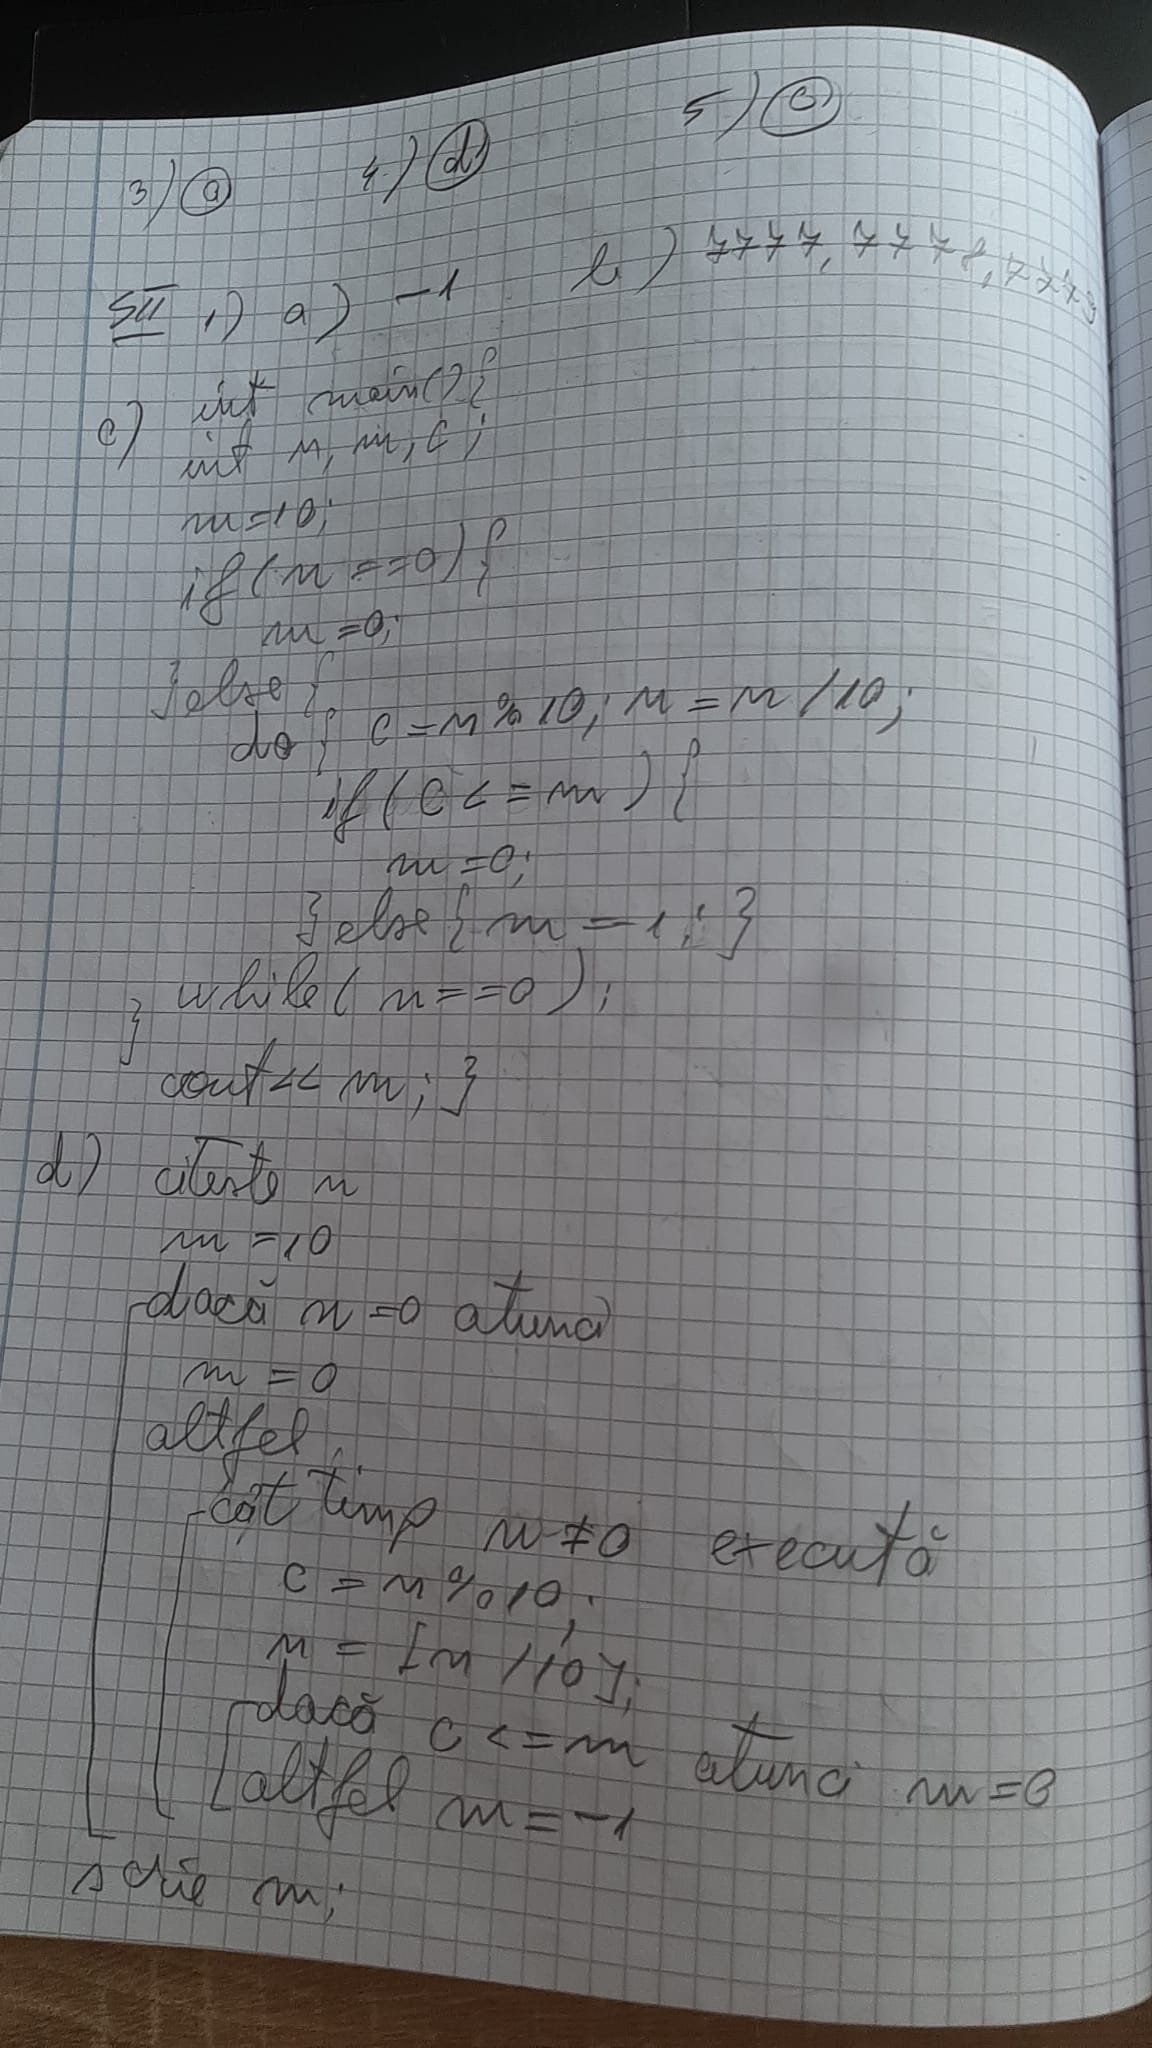 3) a 4) d 5) c
SII 1) a) -1 b) 7777, 7778, 7779
c) int main(){
int n, m, c;
m=10;
if(n==0){
m=0;
}else{
do{ c=n%10; n=n/10;
if(c<=m){
m=0;
}else{m=-1;}
} while(n==0);
cout<<m;}
d) citește n
m=10
dacă n=0 atunci
m=0
altfel
cât timp n≠0 execută
c=n%10;
n=[n/10];
dacă c<=m atunci m=c
altfel m=-1
scrie m;